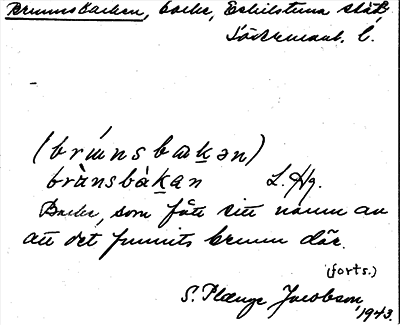 Brunnsbacken, backe, Eskilstuna stad,
Södermanl. l.
(brúnsbakən)
brùnsbàkan L. Hg.
Backe, som fått sitt namn av
att det funnits brunn där.
(forts.)
S. Plænge Jacobson
1943.